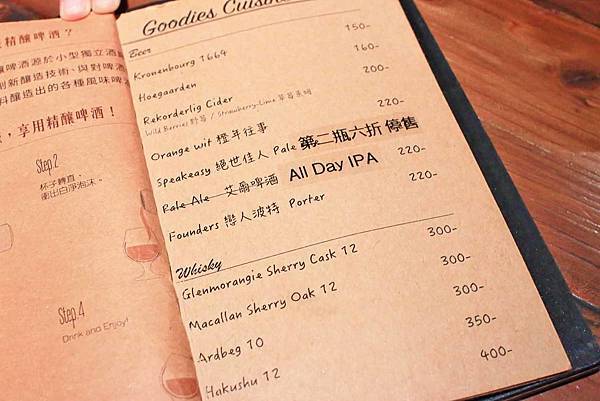 精釀啤酒？
啤酒源於小型獨立酒
創新釀造技術、與對啤酒
料釀造出的各種風味啤
，享用精釀啤酒！
Step 2
杯子轉直，
衝出白淨泡沫。
Step 4
Drink and Enjoy!
Goodies Cuisine
Beer
Kronenbourg 1664 150-
Hoegaarden 160-
Rekorderlig Cider 200-
Wild Berries 野莓 / Strawberry-Lime 草莓萊姆
Orange wit 橙年往事 220-
Speakeasy 絕世佳人 Pale 第二瓶六折 停售
Rale Ale 艾爾啤酒 All Day IPA 220-
Founders 戀人波特 Porter 220-
Whisky
Glenmorangie Sherry Cask 12 300-
Macallan Sherry Oak 12 300-
Ardbeg 10 300-
Hakushu 12 350-
400-